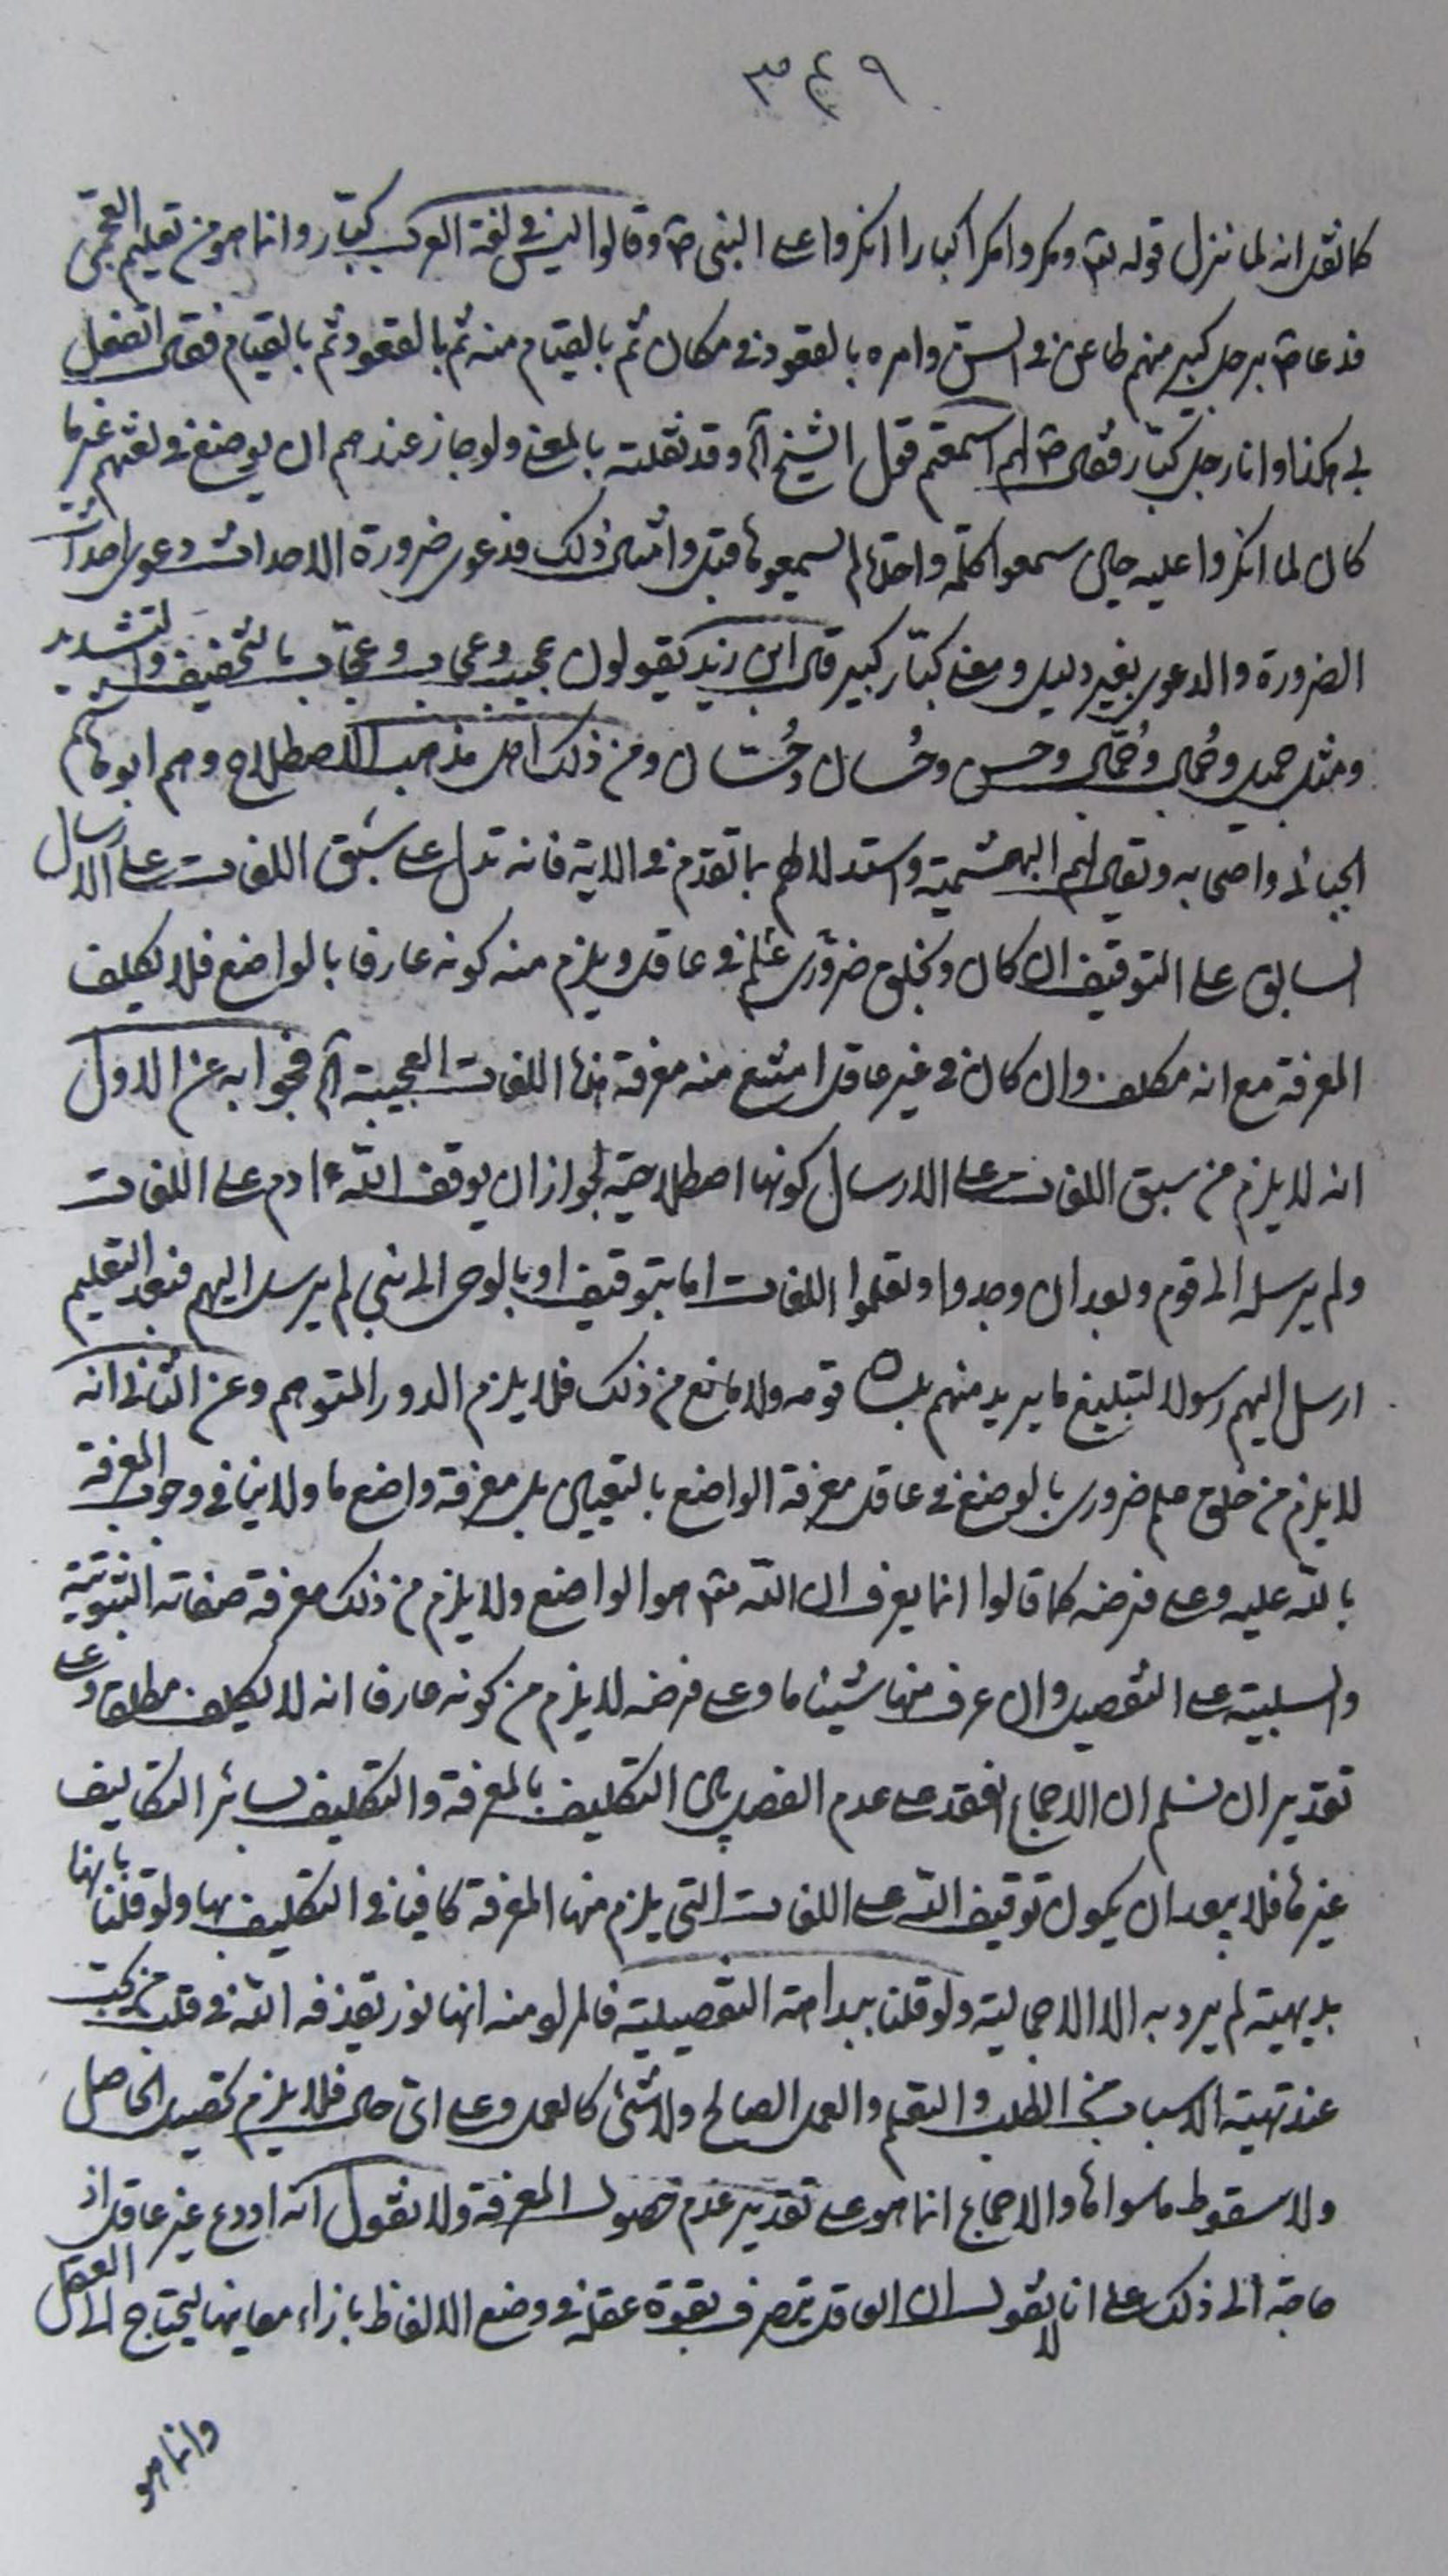 ٣٤٩
كما نقل انه لما نزل قوله تع ومكروا مكرا كبارا انكروا على النبى ص وقالوا ليس فى لغة العرب كبّار وانما هو من تعليم العجمى
فدعا ص برجل كبير منهم طاعن فى السن وامره بالقعود فى مكان ثم بالقيام منه ثم بالقعود ثم بالقيام فقال اتفعل
بى هكذا وانا رجل كبّار فقال ص لهم اسمعتم فقول الشيخ آه وقد نقلته بالمعنى ولو جاز عندهم ان يوضع فى لغتهم غيرها
كان لما انكروا عليه حال سمعوا كلمة واحدة لم يسمعوها قبل وامثال ذلك فدعوى ضرورة الاحداث دعوى احداث
الضرورة والدعوى بغير دليل ومعنى كبّار كبير قال ابن زيد يقولون عجيب وعجاب وعجّاب بالتخفيف والتشديد
ومثل جميل وجُمال وجُمّال وحسن وحُسان وحُسّان ومن ذلك اهل مذهب الاصطلاح وهم ابو هاشم
الجبائى واصحابه ويقال لهم البهشمية واستدلالهم بما تقدم فى الاية فانه تدل على سبق اللغات على الارسال
السابق على التوقيف ان كان وبخلق ضرورى علم فى عاقل ويلزم منه كونه عارفا بالواضع فلا يكلف
المعرفة مع انه مكلف وان كان فى غير عاقل امتنع منه معرفة هذه اللغات العجيبة آه فجوابه عن الاول
انه لا يلزم من سبق اللغات على الارسال كونها اصطلاحية لجواز ان يوقف الله ادم على اللغات
ولم يرسله الى قوم وبعد ان وجدوا وتعلموا اللغات اما بتوقيف او بالوحى الى نبى لم يرسل اليهم فبعد التعليم
ارسل اليهم رسولا لتبليغ ما يريد منهم بلسان قومه ولا مانع من ذلك فلا يلزم الدور المتوهم وعن الثانى انه
لا يلزم من خلق علم ضرورى بالوضع فى عاقل معرفة الواضع بالتعيين بل معرفة واضع ما ولا ينافى وجوب المعرفة
بالله عليه وعلى فرضه كما قالوا انما يعرف ان الله تع هو الواضع ولا يلزم من ذلك معرفة صفاته الثبوتية
والسلبية على التفصيل وان عرف منها شيئا ما وعلى فرضه لا يلزم من كونه عارفا انه لا يكلف مطلقا وعلى
تقدير ان نسلم ان الاجماع انعقد على عدم الفصل بين التكليف بالمعرفة والتكليف بسائر التكاليف
غيرها فلا يبعد ان يكون توقيف الله على اللغات التى يلزم منها المعرفة كافيا فى التكليف بها ولو قلنا بانها
بديهية لم يرد به الا الاجمالية ولو قلنا ببداهة التفصيلية فالمراد منه انها نور يقذفه الله فى قلب من يحب
عند تهيئة الاسباب من الطلب والتعلم والعمل الصالح ولا شئ كالعمل وعلى اى حال فلا يلزم تحصيل الحاصل
ولا سقوط ما سواها والاجماع انما هو على تقدير عدم حصول المعرفة ولا نقول انه اودع غير عاقل اذ
حاجة الى ذلك على انا لا نقول ان العاقل يتصرف بقوة عقله فى وضع الالفاظ بازاء معانيها ليحتاج الى العقل
وانما هو